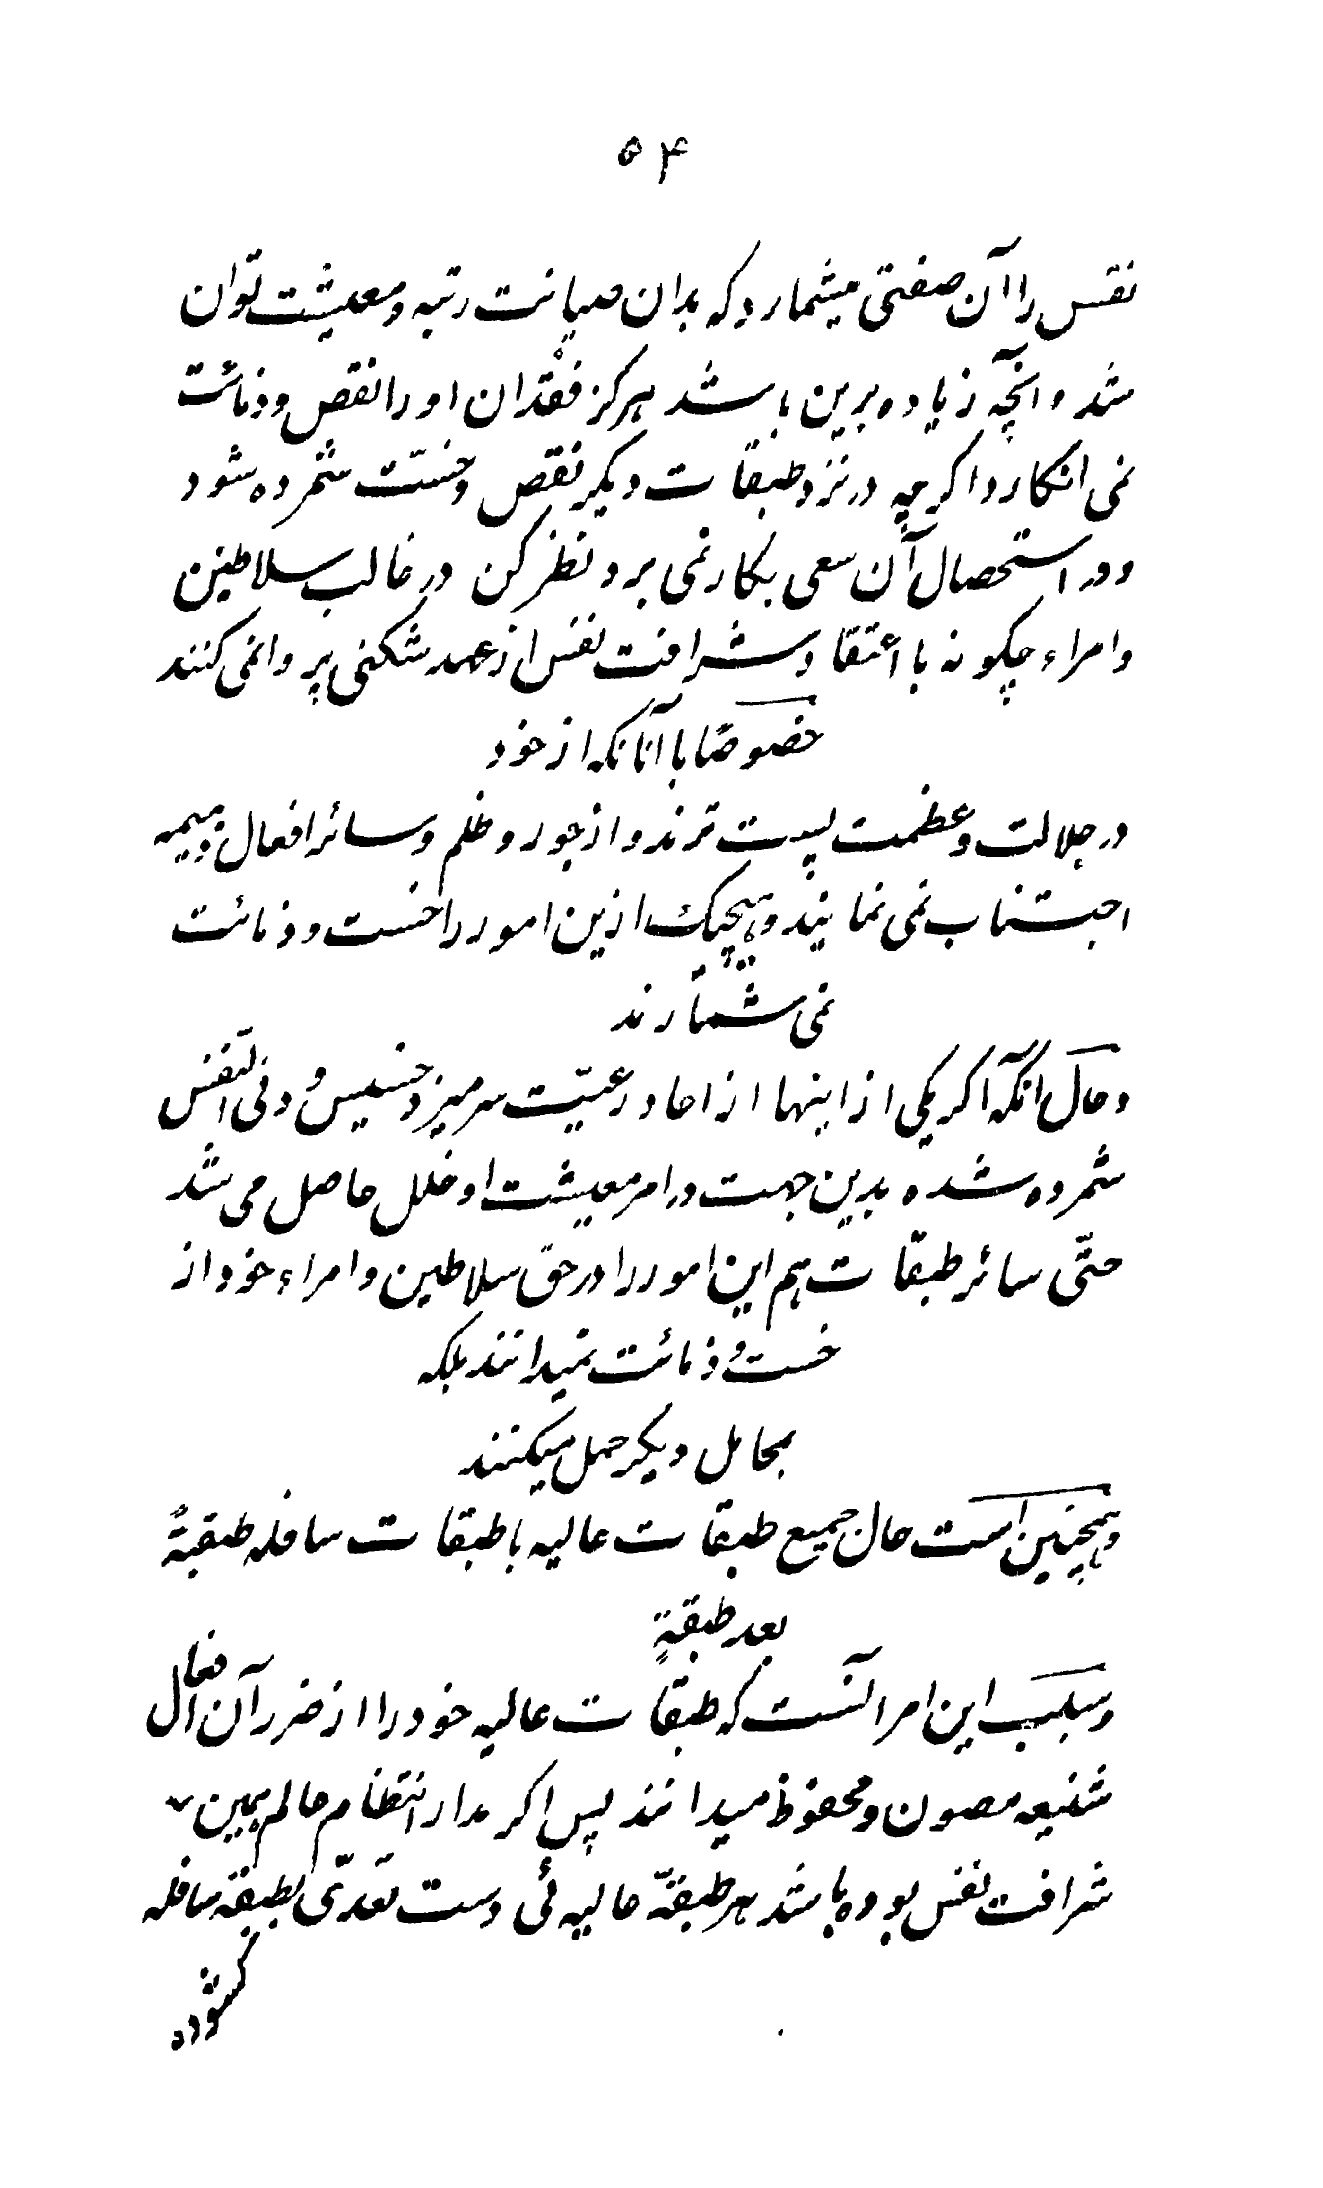 ۵۴
نفس را آن صفتی میشمارد که بدان صیانت رتبه و معیشت توان
شد و آنچه زیاده برین باشد هرگز فقدان او را نقص و دنائت
نمی انکارد اگرچه در نزد طبقات دیگر نقص و خسّت شمرده شود
و در استحصال آن سعی بکار نمی برد نظر کن در غالب سلاطین
و امراء چگونه با اعتقاد شرافت نفس از عهد شکنی پروا نمی کنند
خصوصًا با آنانکه از خود
در جلالت و عظمت پست ترند و از جور و ظلم و سائر افعال ذمیمه
اجتناب نمی نمایند و هیچیک ازین امور را خست و دنائت
نمی شمارند
و حال آنکه اگر یکی از اینها از احاد رعیّت سر میزد خسیس و دنی النّفس
شمرده شده بدین جهت در امر معیشت او خلل حاصل می شد
حتّی سائر طبقات هم این امور را در حق سلاطین و امراء خود از
خست و دنائت نمیدانند بلکه
بمحامل دیکر حمل میکنند
و همچنین است حال جمیع طبقات عالیه با طبقات سافله طبقةً
بعد طبقةٍ
و سبب این امر آنست که طبقات عالیه خود را از ضرر آن افعال
شنیعه مصون و محفوظ میدانند پس اکر مدار انتظام عالم بهمین
شرافت نفس بوده باشد هر طبقهٔ عالیه ئی دست تعدّی بطبقهٔ سافله
کشوده